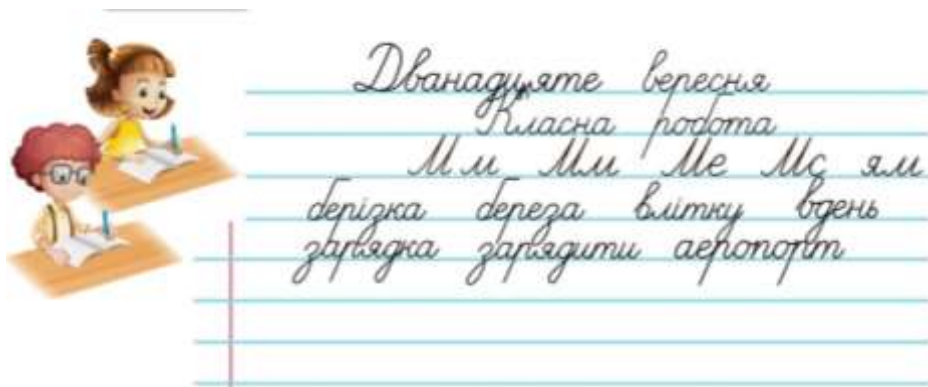 Дванадцяте вересня
Класна робота
Мм Мм Ме Мс ям
берізка береза влітку вдень
зарядка зарядити аеропорт